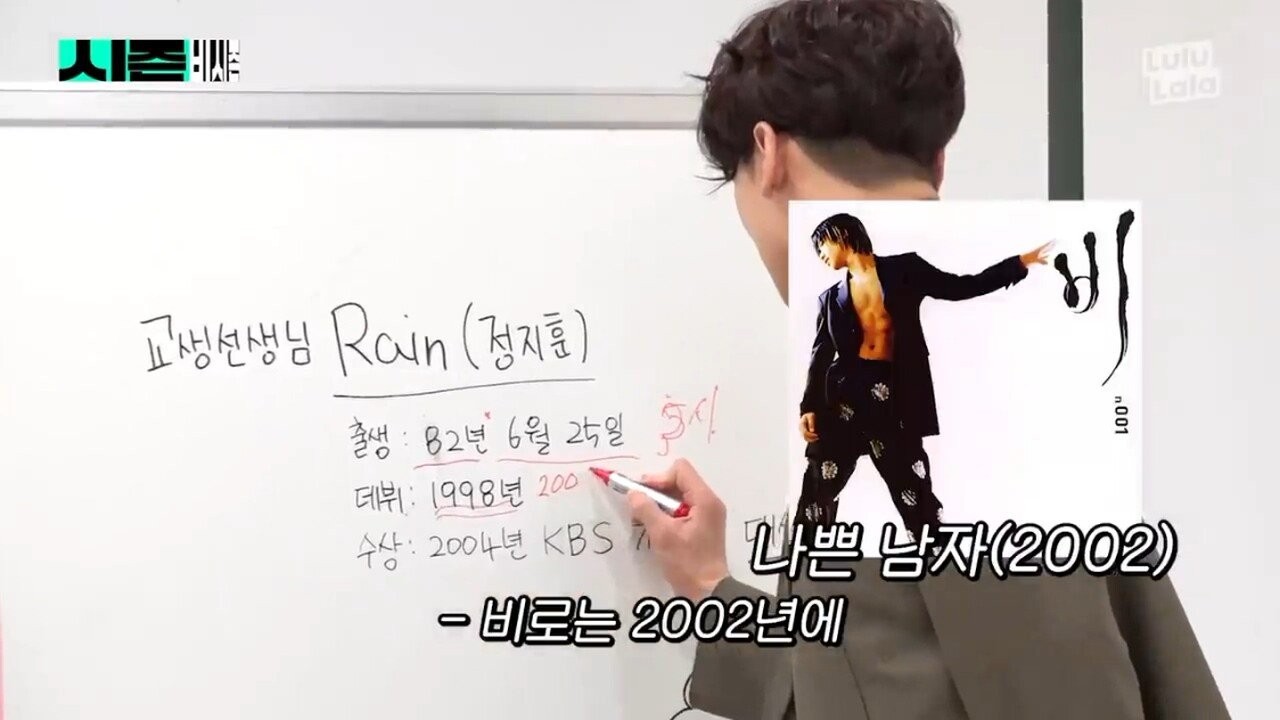 시즌비시즌
Lulu
Lala
교생선생님 Rain (정지훈)
출생 : 82년 6월 25일
데뷔 : 1998년 200
수상 : 2004년 KBS
비
n001
나쁜 남자(2002)
- 비로는 2002년에